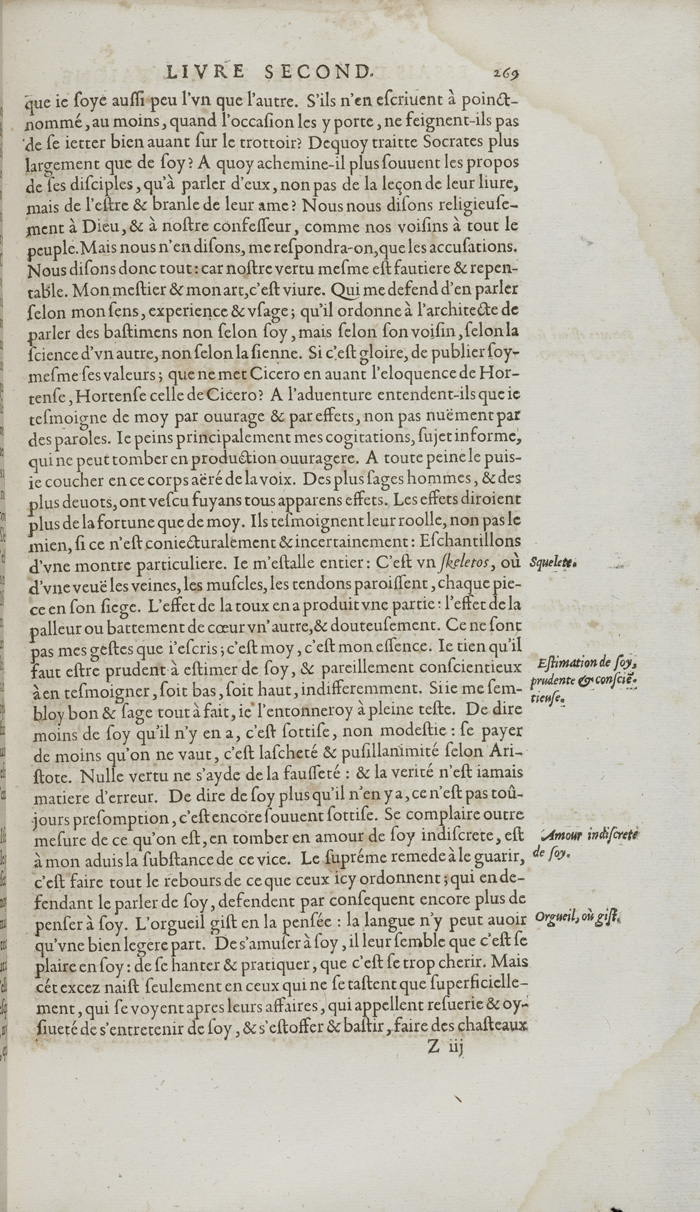 LIVRE SECOND. 269
que ie ſoye auſſi peu l'vn que l'autre. S'ils n'en eſcriuent à poinct-
nommé, au moins, quand l'occaſion les y porte, ne feignent-ils pas
de ſe ietter bien auant ſur le trottoir? Dequoy traitte Socrates plus
largement que de ſoy? A quoy achemine-il plus ſouuent les propos
de ſes diſciples, qu'à parler d'eux, non pas de la leçon de leur liure,
mais de l'eſtre & branle de leur ame? Nous nous diſons religieuſe-
ment à Dieu, & à noſtre confeſſeur, comme nos voiſins à tout le
peuple. Mais nous n'en diſons, me reſpondra-on, que les accuſations.
Nous diſons donc tout: car noſtre vertu meſme eſt fautiere & repen-
table. Mon meſtier & mon art, c'eſt viure. Qui me defend d'en parler
ſelon mon ſens, experience & vſage; qu'il ordonne à l'architecte de
parler des baſtimens non ſelon ſoy, mais ſelon ſon voiſin, ſelon la
ſcience d'vn autre, non ſelon la ſienne. Si c'eſt gloire, de publier ſoy-
meſme ſes valeurs; que ne met Cicero en auant l'eloquence de Hor-
tenſe, Hortenſe celle de Cicero? A l'aduenture entendent-ils que ie
teſmoigne de moy par ouurage & par effets, non pas nuëment par
des paroles. Ie peins principalement mes cogitations, ſujet informe,
qui ne peut tomber en production ouuragere. A toute peine le puis-
ie coucher en ce corps aëré de la voix. Des plus ſages hommes, & des
plus deuots, ont veſcu fuyans tous apparens effets. Les effets diroient
plus de la fortune que de moy. Ils teſmoignent leur roolle, non pas le
mien, ſi ce n'eſt coniecturalement & incertainement: Eſchantillons
d'vne montre particuliere. Ie m'eſtalle entier: C'eſt vn ſkeletos, où
Squelete.
d'vne veuë les veines, les muſcles, les tendons paroiſſent, chaque pie-
ce en ſon ſiege. L'effet de la toux en a produit vne partie: l'effet de la
palleur ou battement de cœur vn'autre, & douteuſement. Ce ne ſont
pas mes geſtes que i'eſcris; c'eſt moy, c'eſt mon eſſence. Ie tien qu'il
faut eſtre prudent à eſtimer de ſoy, & pareillement conſcientieux
à en teſmoigner, ſoit bas, ſoit haut, indifferemment. Si ie me ſem-
Eſtimation de ſoy,
prudente & conſciẽ-
tieuſe.
bloy bon & ſage tout à fait, ie l'entonneroy à pleine teſte. De dire
moins de ſoy qu'il n'y en a, c'eſt ſottiſe, non modeſtie: ſe payer
de moins qu'on ne vaut, c'eſt laſcheté & puſillanimité ſelon Ari-
ſtote. Nulle vertu ne s'ayde de la fauſſeté: & la verité n'eſt iamais
matiere d'erreur. De dire de ſoy plus qu'il n'en y a, ce n'eſt pas toû-
jours preſomption, c'eſt encore ſouuent ſottiſe. Se complaire outre
meſure de ce qu'on eſt, en tomber en amour de ſoy indiſcrete, eſt
Amour indiſcrete
de ſoy.
à mon aduis la ſubſtance de ce vice. Le ſupréme remede à le guarir,
c'eſt faire tout le rebours de ce que ceux icy ordonnent; qui en de-
fendant le parler de ſoy, defendent par conſequent encore plus de
penſer à ſoy. L'orgueil giſt en la penſée: la langue n'y peut auoir
Orgueil, où giſt.
qu'vne bien legere part. De s'amuſer à ſoy, il leur ſemble que c'eſt ſe
plaire en ſoy: de ſe hanter & pratiquer, que c'eſt ſe trop cherir. Mais
cét excez naiſt ſeulement en ceux qui ne ſe taſtent que ſuperficielle-
ment, qui ſe voyent apres leurs affaires, qui appellent reſuerie & oy-
ſiueté de s'entretenir de ſoy, & s'eſtoffer & baſtir, faire des chaſteaux
Z iij